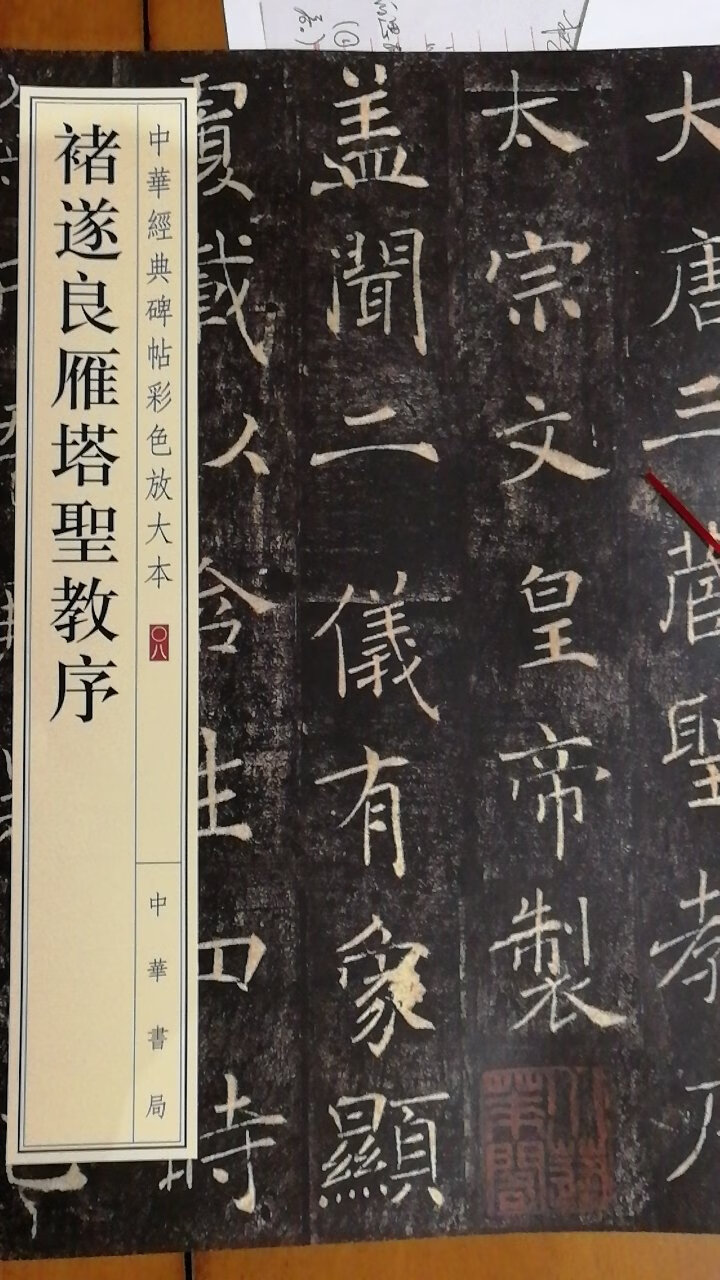 褚遂良雁塔聖教序
中華經典碑帖彩色放大本
〇八
中華書局
大唐三藏聖教
太宗文皇帝製
盖聞二儀有象顯
載以含生
四時